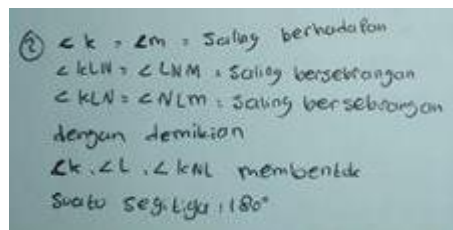 ② ∠k = ∠m = Saling berhadapan
∠KLN = ∠LNM = Saling bersebrangan
∠KLN = ∠NLM = Saling bersebrangan
dengan demikian
∠k, ∠L, ∠KNL membentuk
Suatu segitiga : 180°